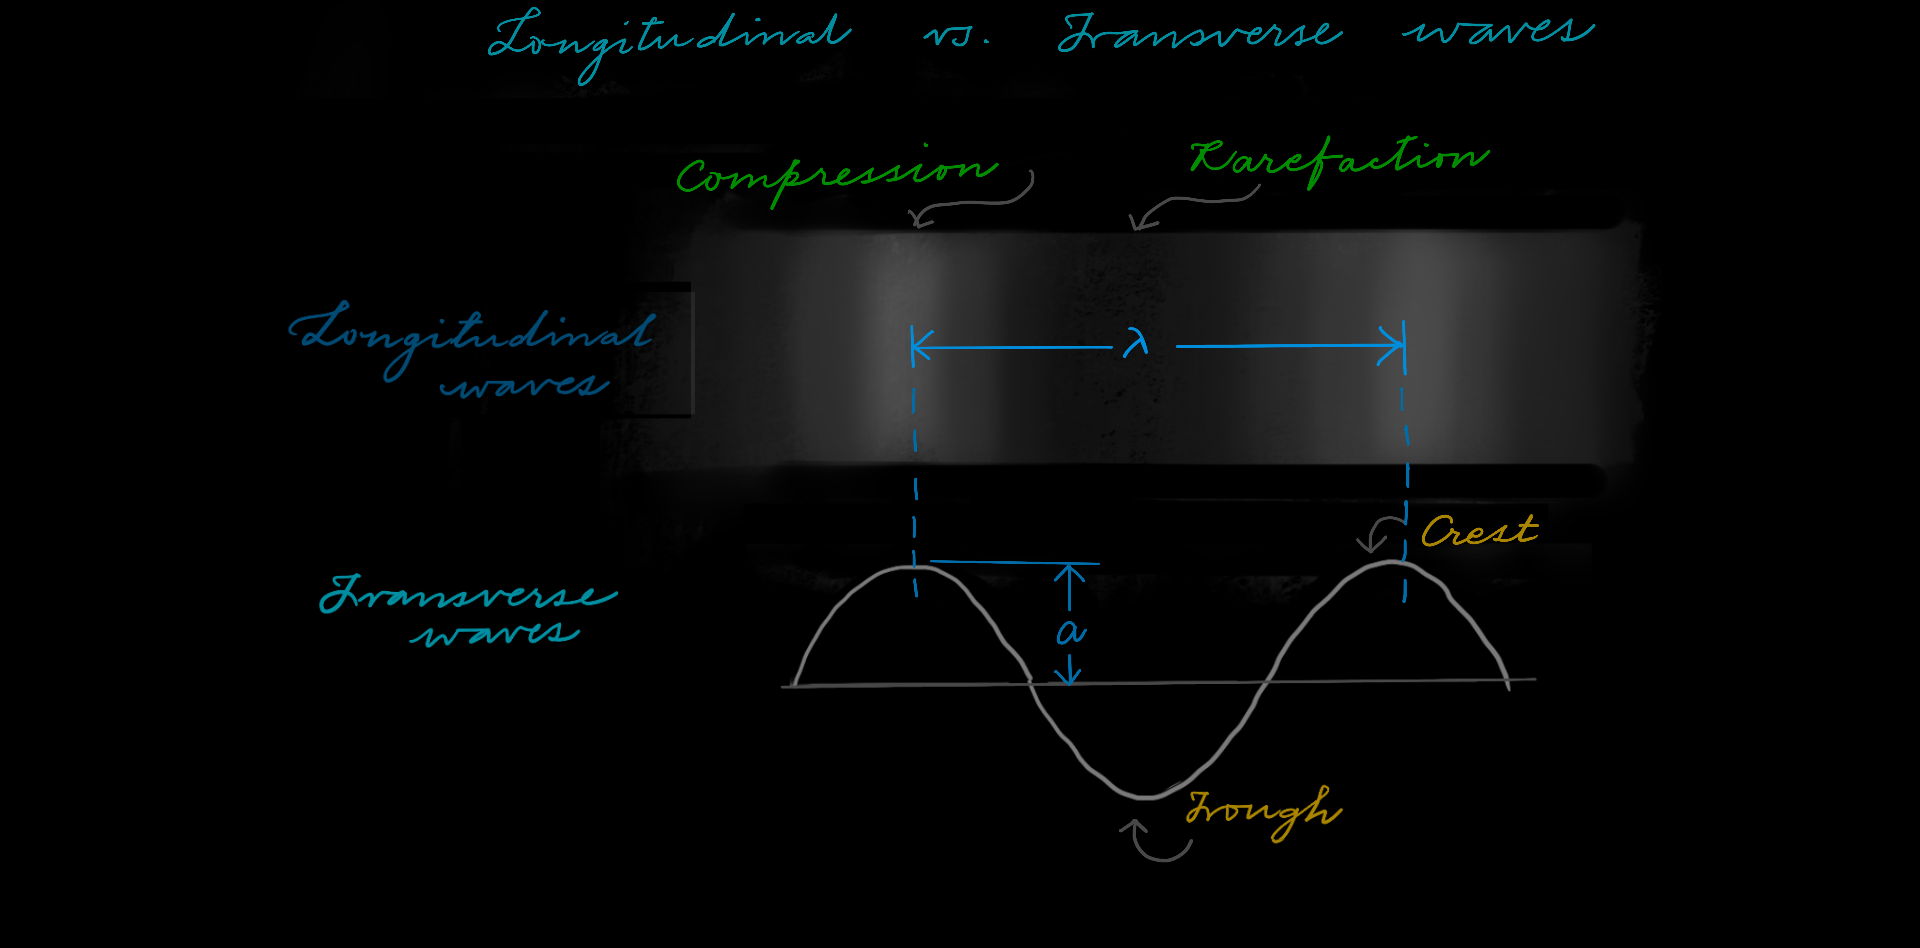 Longitudinal vs. Transverse waves
Compression
Rarefaction
Longitudinal
waves
λ
Crest
Transverse
waves
a
Trough